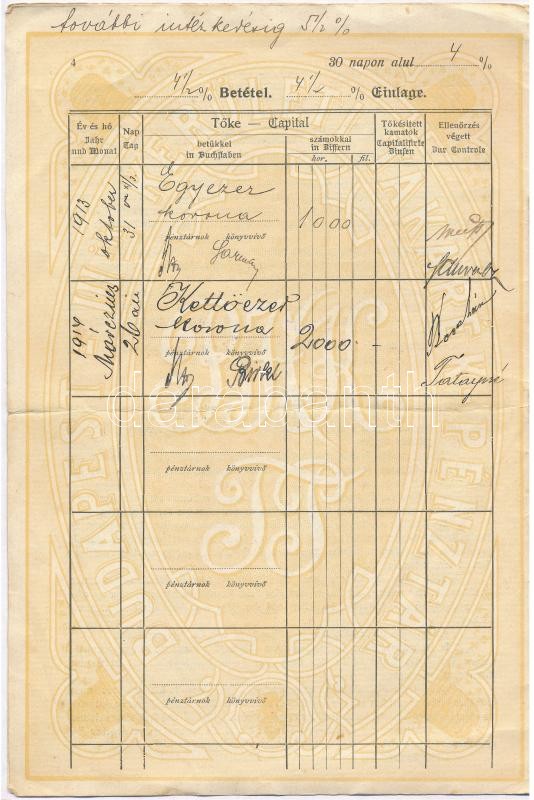 további intézkedésig 5 1/2 %
4
30 napon alul 4 %
4 1/2 % Betétel. 4 1/2 % Einlage.
Év és hó
Jahr
und Monat
Nap
Tag
Tőke — Capital
betűkkel
in Buchstaben
számokkal
in Ziffern
kor. fil.
Tőkésített
kamatok
Capitalisirte
Zinsen
Ellenőrzés
végett
Zur Controle
1913
október
31
Egyezer
korona
1000
pénztárnok könyvvivő
1914
Márczius
26
Kettőezer
korona
2000 -
pénztárnok könyvvivő
pénztárnok könyvvivő
pénztárnok könyvvivő
pénztárnok könyvvivő
darabanth
BUDAPEST
PÉNZTÁR